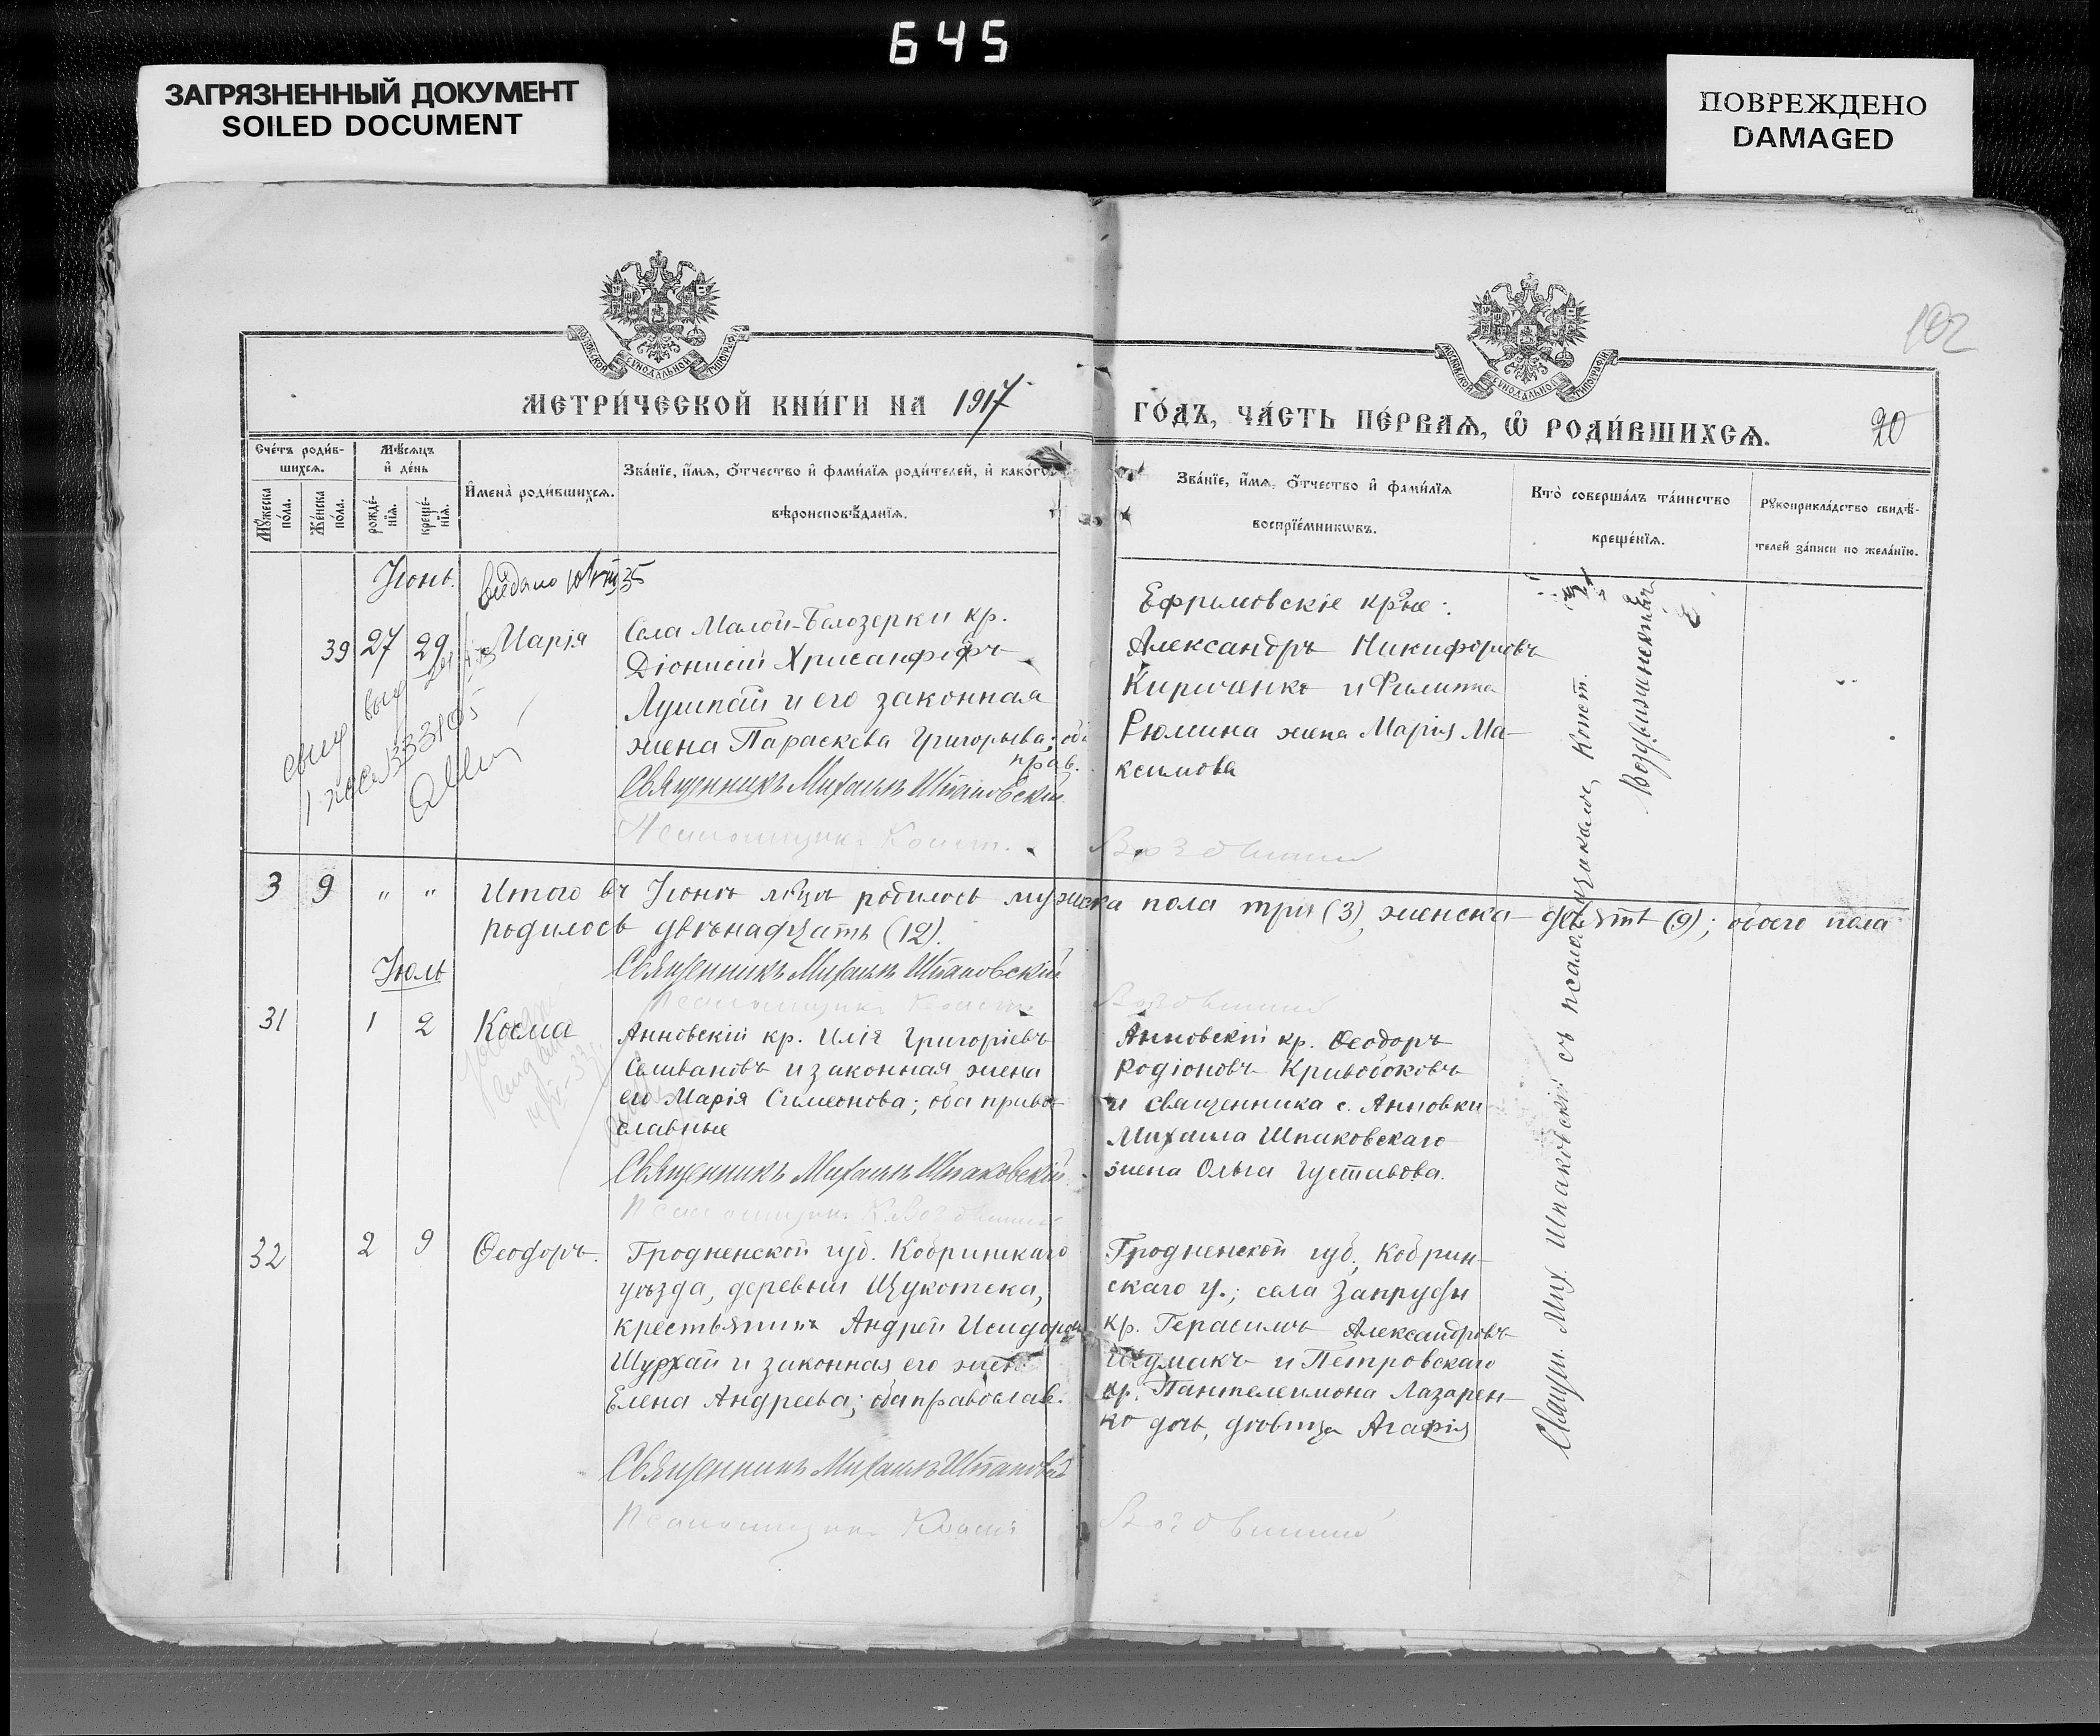 645
ЗАГРЯЗНЕННЫЙ ДОКУМЕНТ
SOILED DOCUMENT
ПОВРЕЖДЕНО
DAMAGED
102
МЕТРИ́ЧЕСКОЙ КНИ́ГИ НА 1917
ГО́ДЪ, ЧА́СТЬ ПЕ́РВАѦ, Ѽ РОДИ́ВШИХСѦ.
20
Сче́тъ роди́в-
шихсѧ.
Мꙋ́жеска по́ла.
Же́нска по́ла.
Мѣ́сѧцъ
и҆ де́нь
рожде́-
нїѧ.
креще́-
нїѧ.
И҆мена̀ роди́вшихсѧ.
Зва́нїе, и҆́мѧ, ѻ҆́тчество и҆ фами́лїѧ роди́телей, и҆ како́гѡ
вѣроисповѣ́данїѧ.
Зва́нїе, и҆́мѧ, ѻ҆́тчество и҆ фами́лїѧ
воспрїе́мникѡвъ.
Кто̀ соверша́лъ та́инство
креще́нїѧ.
Рꙋкоприкла́дство свидѣ́-
телей за́писи по жела́нїю.
Іюнь.
39 27 29 Марія
Села Малой-Белозерки кр.
Діонисій Хрисанфовъ
Лушпай и его законная
жена Параскева Григорьева; оба
прав.
Священникъ Михаилъ Шпаковскій
Псаломщикъ Конст. Воздвиж
Ефримовскіе кр-не:
Александръ Никифоровъ
Кириченко и Филиппа
Рюмина жена Марія Ма-
ксимова
3 9 " " Итого въ Іюнѣ м-цѣ родилось мужска пола три (3), женска девять (9); обоего пола
родилось двѣнадцать (12).
Священникъ Михаилъ Шпаковскій
Псаломщикъ Конст. Воздвиж
Іюль
31 1 2 Косма
Анновскій кр. Илія Григоріевъ
Селивановъ и законная жена
его Марія Симеонова; оба право-
славные
Священникъ Михаилъ Шпаковскій
Псаломщикъ К. Воздвиж
Анновскій кр. Ѳеодоръ
Родіоновъ Кривобоковъ
и священника с. Анновки
Михаила Шпаковскаго
жена Ольга Густавова.
32 2 9 Ѳеодоръ.
Гродненской губ. Кобринскаго
уѣзда, деревни Щукотека,
крестьянинъ Андрей Исидоровъ
Шурхай и законная его жена
Елена Андреева; оба православ.
Священникъ Михаилъ Шпаковскій
Псаломщикъ Конст. Воздвиж
Гродненской губ., Кобрин-
скаго у.; села Запруды
кр. Герасимъ Александровъ
Шумакъ и Петровскаго
кр. Пантелеимона Лазарен-
ко дочь, дѣвица Агафія
Свящ. Мих. Шпаковскій съ псаломщикомъ Конст.
Воздвиженскимъ